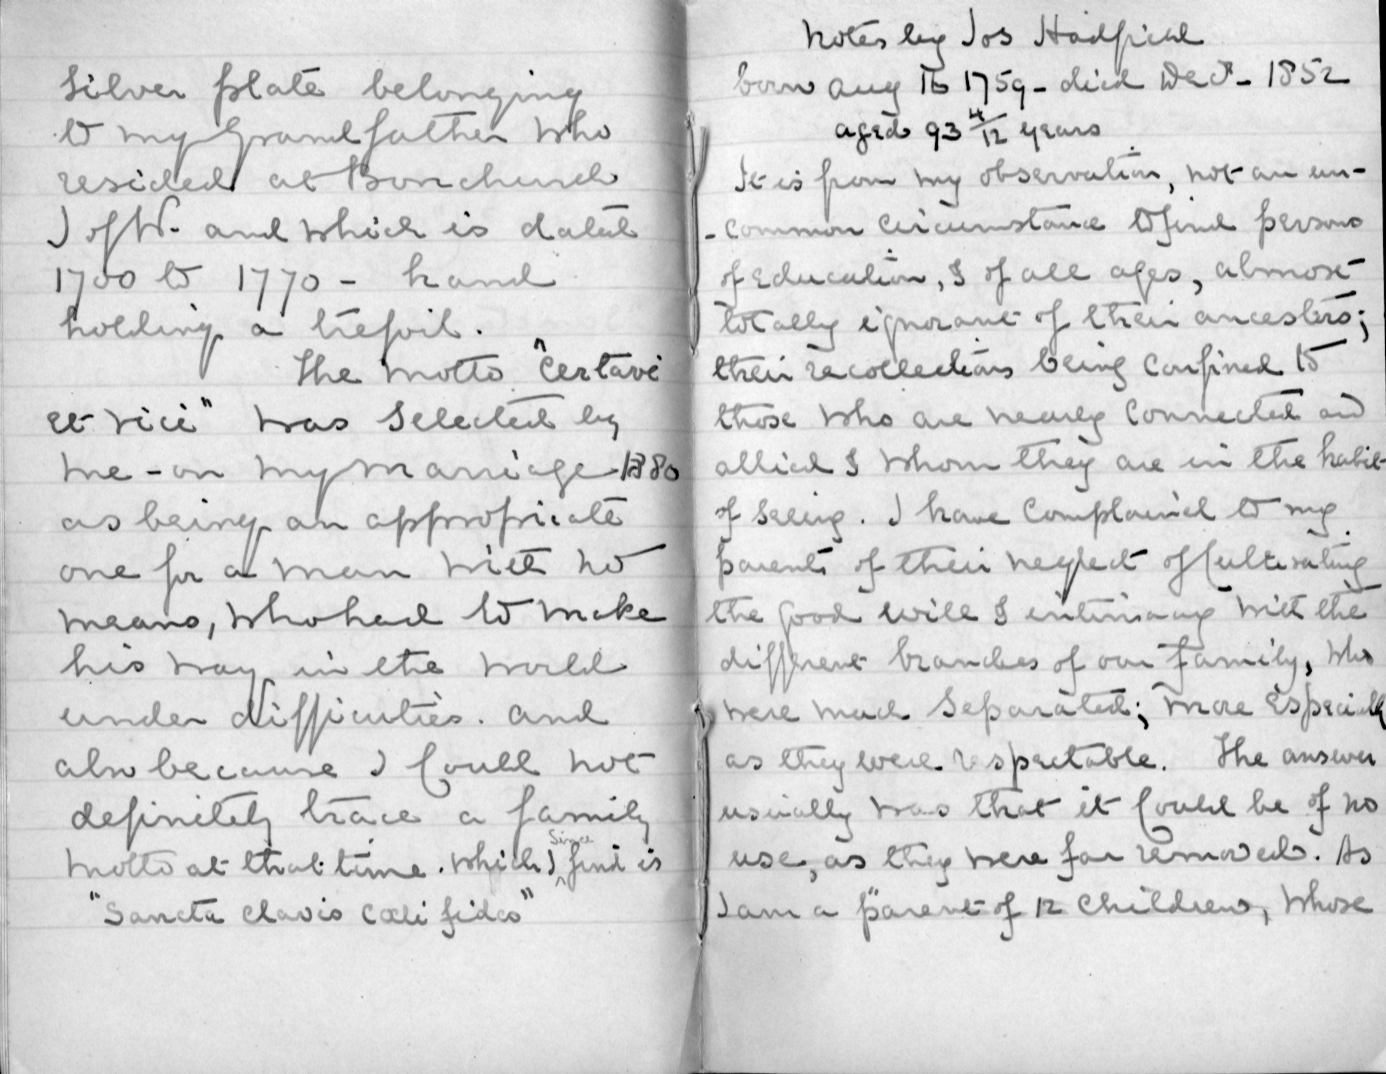 Silver plate belonging
to my Grandfather who
resided at Bonchurch
I of W. and which is dated
1700 to 1770 - hand
holding a trefoil.
The motto "Certavi
et vici" was selected by
me - on my marriage 1880
as being an appropriate
one for a man with no
means, who had to make
his way in the world
under difficulties. and
also because I could not
definitely trace a family
motto at that time. which I since find is
"Sancta clavis coeli fides"
Notes by Jos Hadfield
born Aug 16 1759 - died Decr - 1852
aged 93 4/12 years
It is from my observation, not an un-
-common circumstance to find persons
of education, & of all ages, almost
totally ignorant of their ancestors;
their recollections being confined to
those who are nearly connected and
allied & whom they are in the habit
of seeing. I have complained to my
parents of their neglect of cultivating
the good will & intimacy with the
different branches of our family, who
were much separated; more especially
as they were respectable. The answer
usually was that it could be of no
use, as they were far removed. As
I am a parent of 12 children, whose